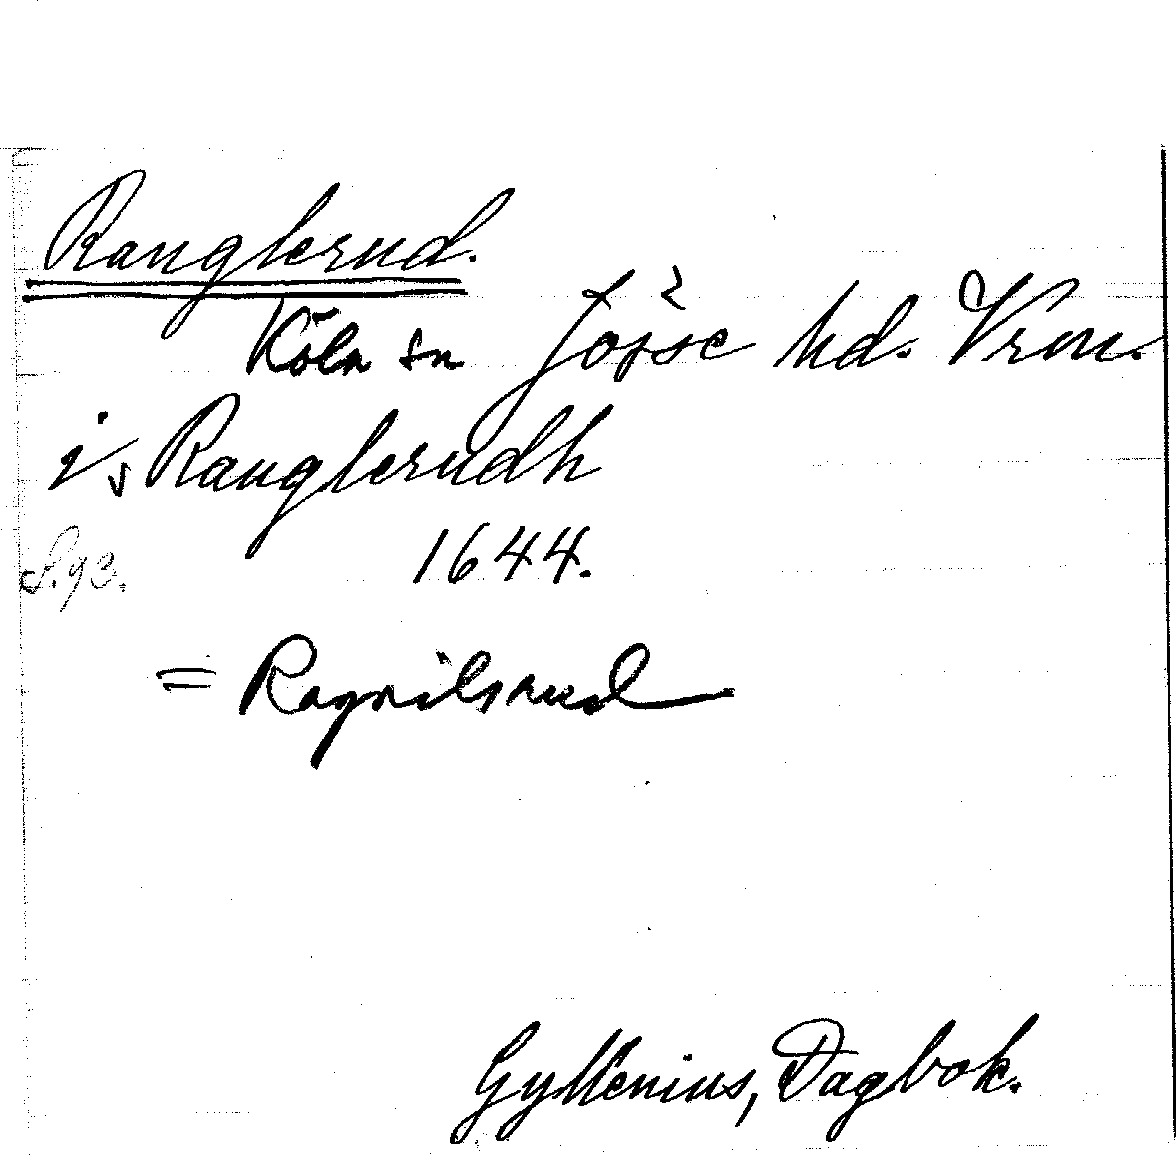 Ranglerud.
Köla sn Jösse hd. Vrm.
i, Ranglerudh
S. 93. 1644.
= Ragnilsrud
Gyllenius, Dagbok.